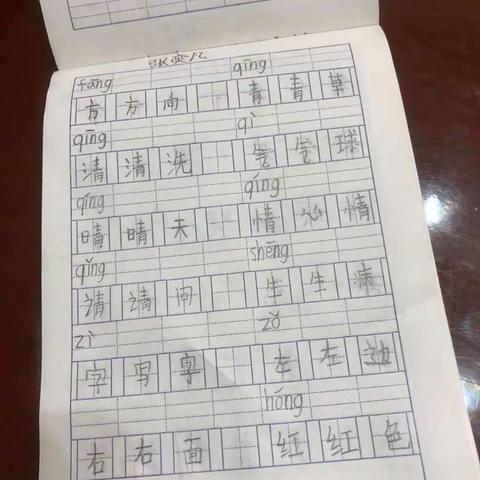 fāng qīng
方方向 青青草
qīng qì
清清洗 气气球
qíng qíng
晴晴天 情心情
qǐng shēng
请请问 生生病
zì zǒ
字写字 左左边
hóng
右右面 红红色